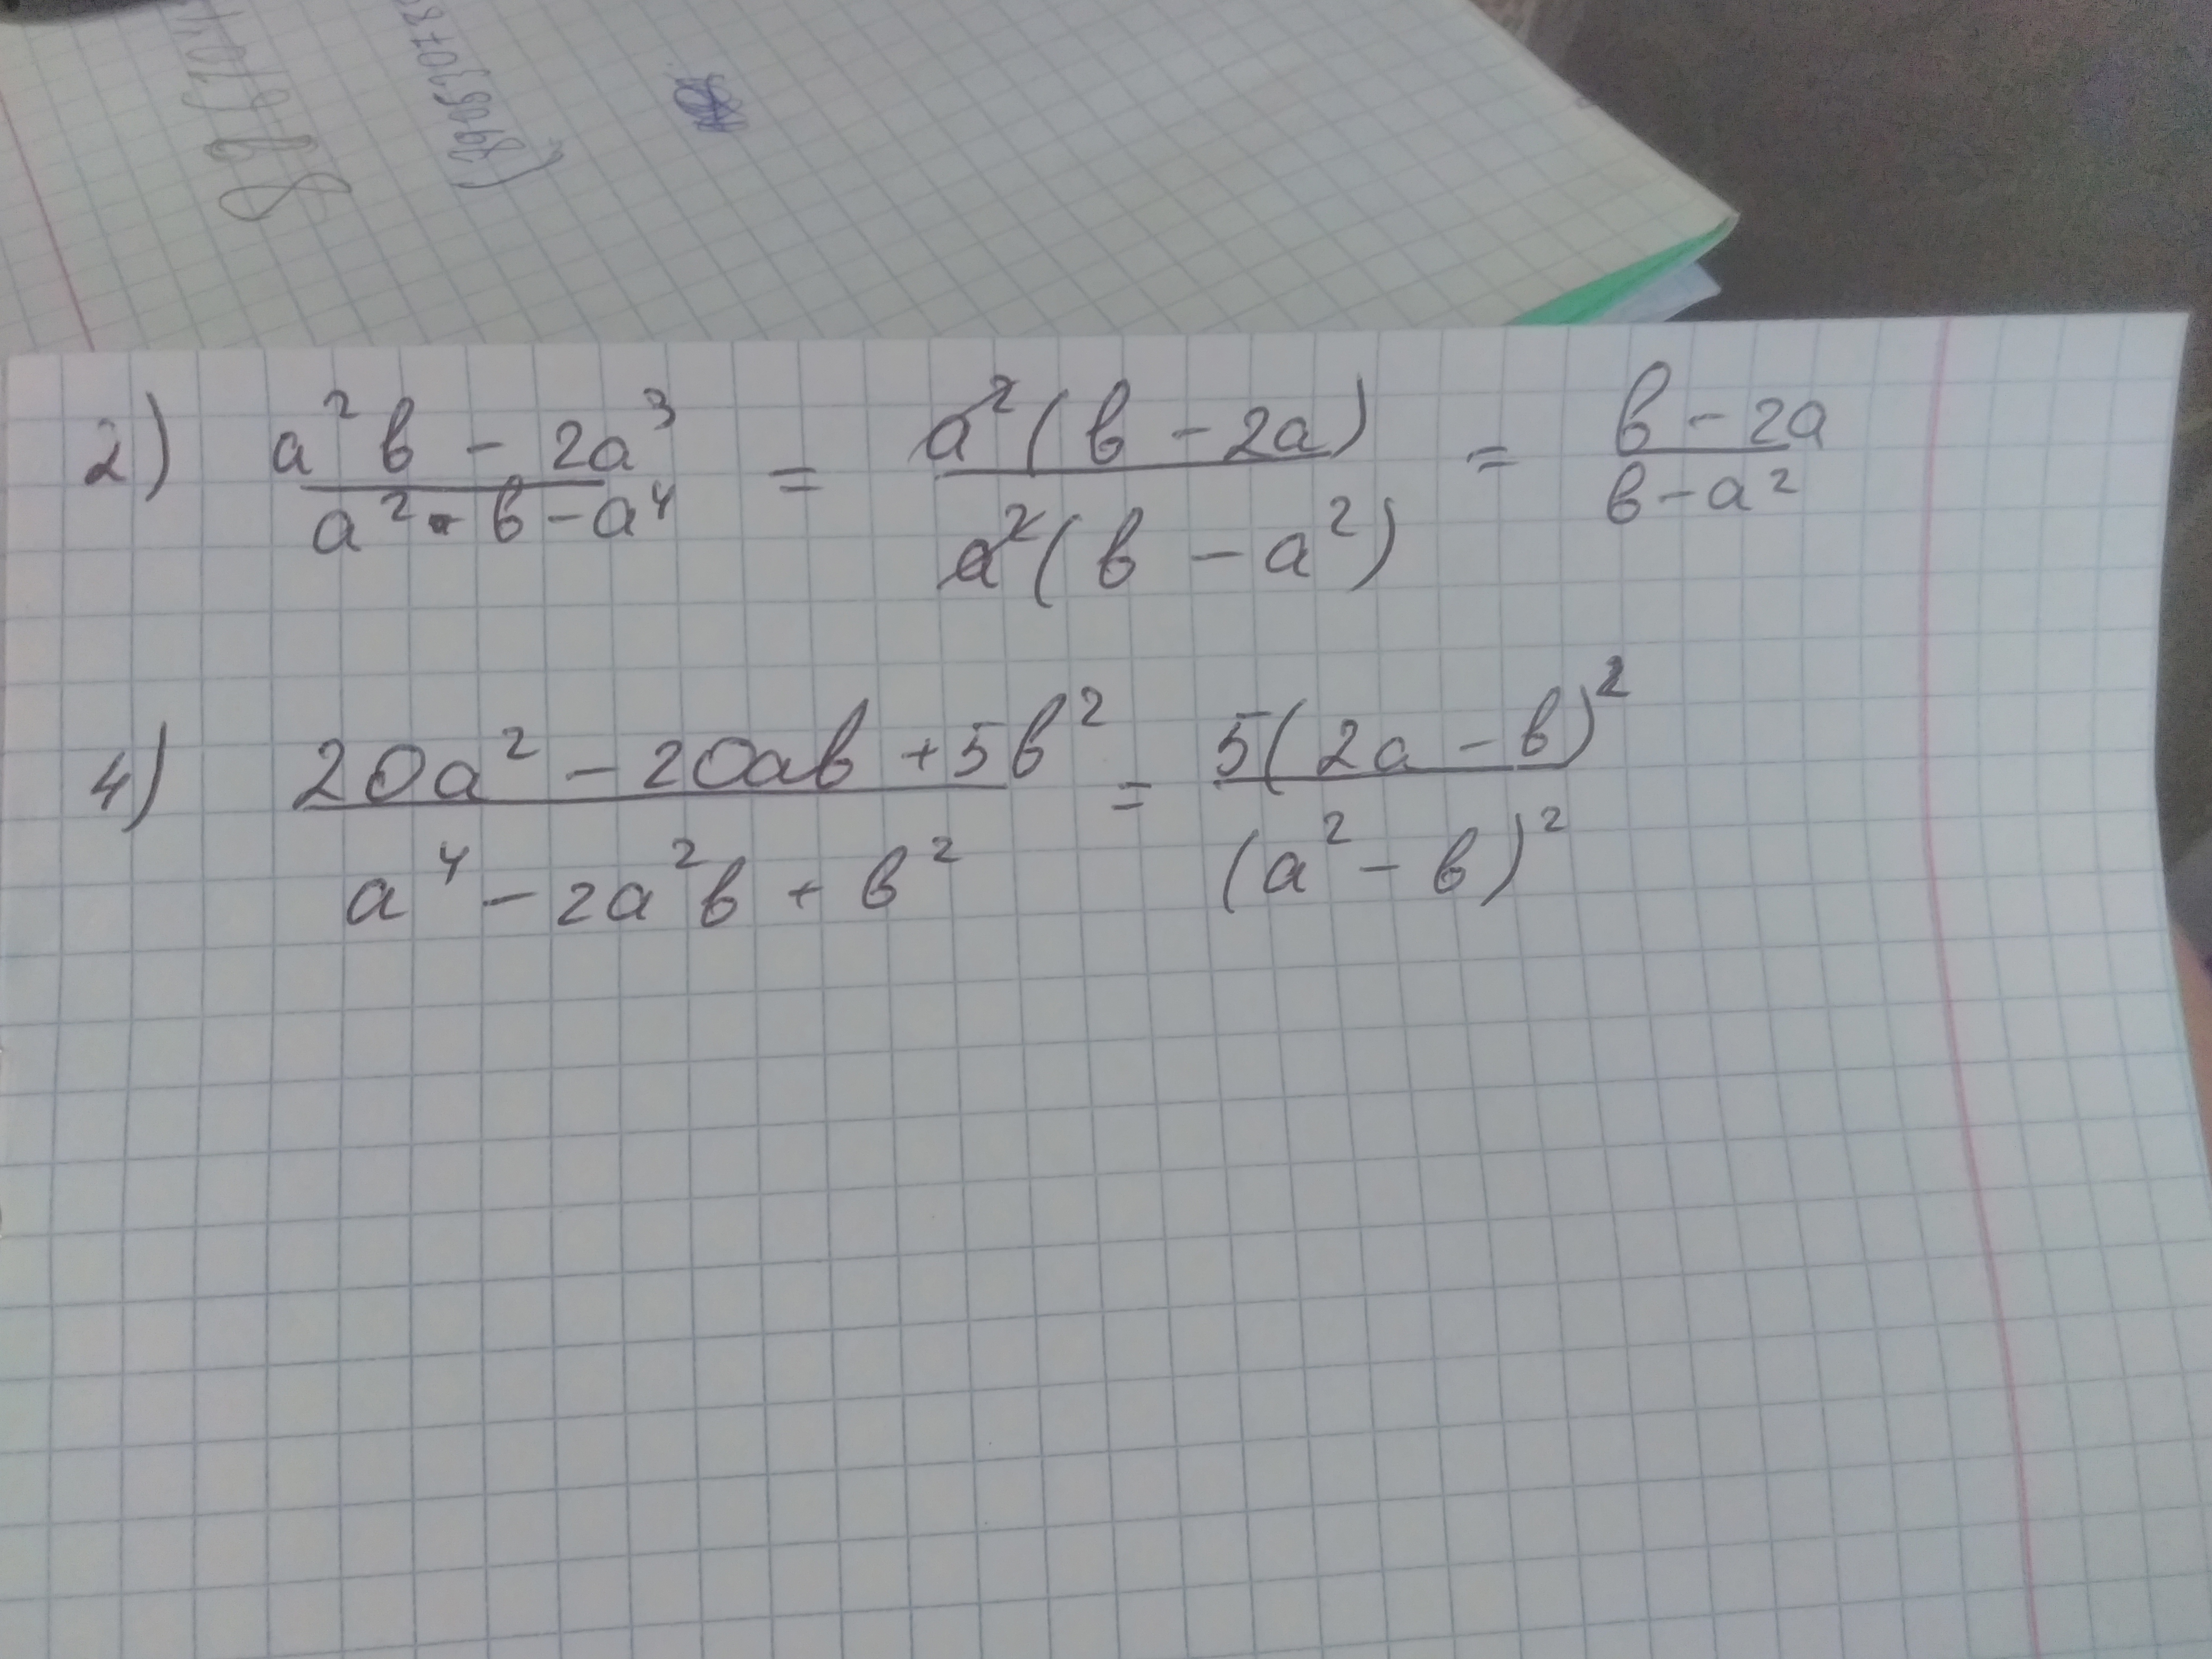 2) (a²b - 2a³)/(a² · b - a⁴) = (a²(b - 2a))/(a²(b - a²)) = (b - 2a)/(b - a²)
4) (20a² - 20ab + 5b²)/(a⁴ - 2a²b + b²) = (5(2a - b)²)/((a² - b)²)